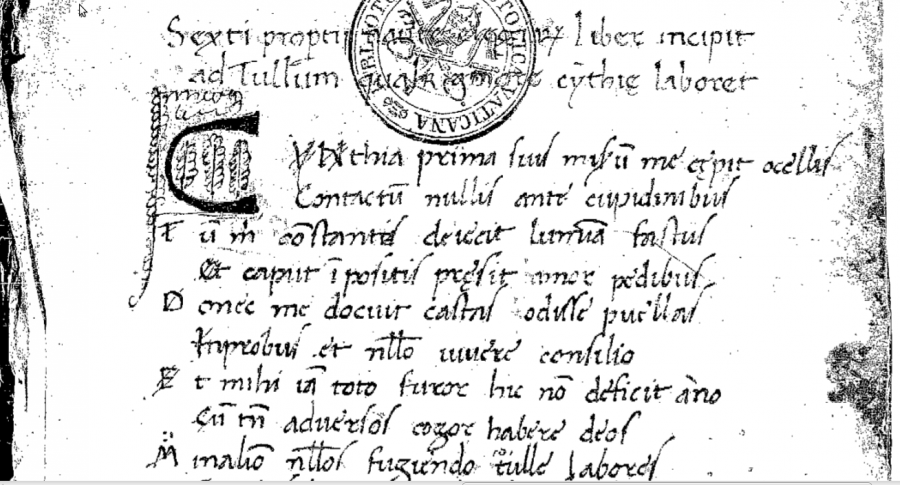 Sexti liber incipit
ad Tullum cỹthię laboret
VATICANA
Cynthia prima suis miseꝝ̄ me cępit ocellis
Contactū nullis ante cupidinibus
Tū m̄ cōstantis deiecit lumīa fastus
Et caput īpositis pręsit amor pedibus
Donec me docuit castas odisse puellas
Inprobus et nłło uiuere consilio
Et mihi iā toto furor hic nō deficit āno
Cū tn̄ adversos cogor habere deos
Milaniō nłłos fugiendo tulle labores